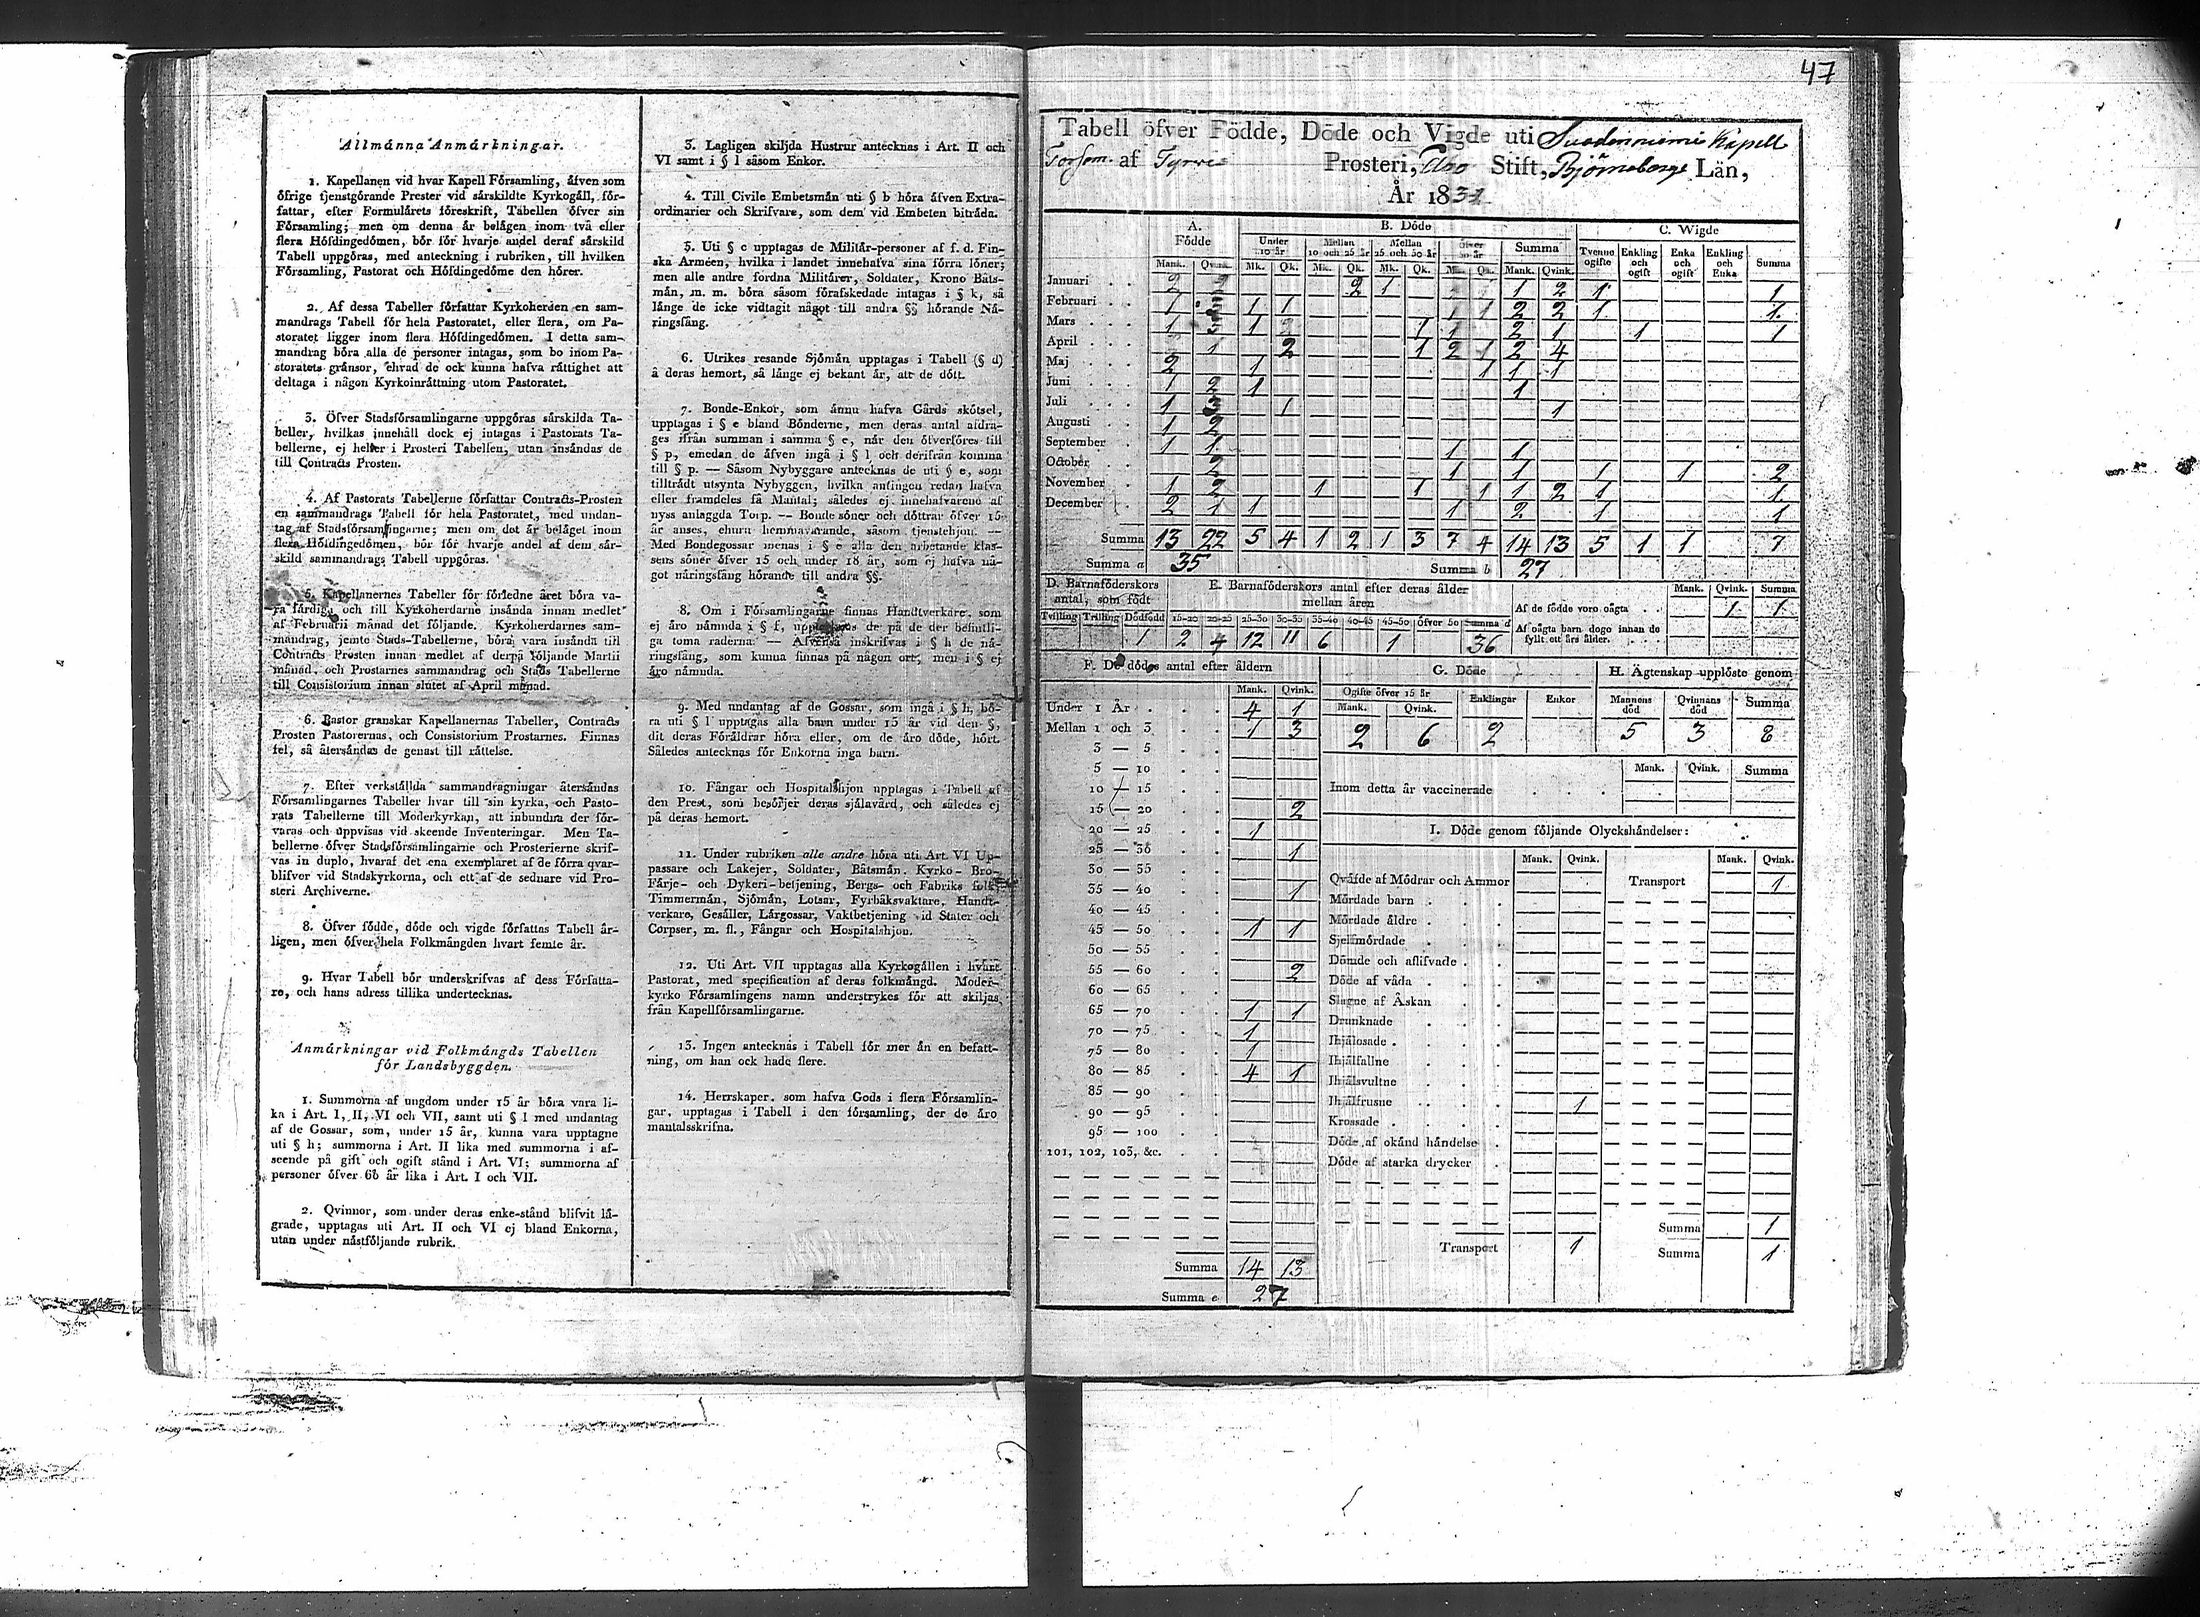 Allmänna Anmärkningar.
1. Kapellanen vid hvar Kapell Församling, äfven som
öfrige tjenstgörande Prester vid särskildte Kyrkogäll, för-
fattar, efter Formulärets föreskrift, Tabellen öfver sin
Församling; men om denna är belägen inom två eller
flera Höfdingedömen, bör för hvarje andel deraf särskild
Tabell uppgöras, med anteckning i rubriken, till hvilken
Församling, Pastorat och Höfdingedöme den hörer.
2. Af dessa Tabeller författar Kyrkoherden en sam-
mandrags Tabell för hela Pastoratet, eller flera, om Pa-
storatet ligger inom flera Höfdingedömen. I detta sam-
mandrag böra alla de personer intagas, som bo inom Pa-
storatets gränsor, ehvad de ock kunna hafva rättighet att
deltaga i någon Kyrkoinrättning utom Pastoratet.
3. Öfver Stadsförsamlingarne uppgöras särskilda Ta-
beller, hvilkas innehåll dock ej intagas i Pastorats Ta-
bellerne, ej heller i Prosteri Tabellen, utan insändas de
till Contracts Prosten.
4. Af Pastorats Tabellerne författar Contracts-Prosten
en sammandrags Tabell för hela Pastoratet, med undan-
tag af Stadsförsamlingarne; men om det är beläget inom
flera Höfdingedömen, bör för hvarje andel af dem sär-
skild sammandrags Tabell uppgöras.
5. Kapellanernes Tabeller för förledne året böra va-
ra färdiga och till Kyrkoherdarne insända innan medlet
af Februarii månad det följande. Kyrkoherdarnes sam-
mandrag, jemte Stads-Tabellerne, böra vara insända till
Contracts Prosten innan medlet af derpå följande Martii
månad, och Prostarnes sammandrag och Stads Tabellerne
till Consistorium innan slutet af April månad.
6. Pastor granskar Kapellanernas Tabeller, Contracts
Prosten Pastorernas, och Consistorium Prostarnes. Finnas
fel, så återsändas de genast till rättelse.
7. Efter verkställda sammandragningar återsändas
Församlingarnes Tabeller hvar till sin kyrka, och Pasto-
rats Tabellerne till Moderkyrkan, att inbundna der för-
varas och uppvisas vid skeende Inventeringar. Men Ta-
bellerne öfver Stadsförsamlingarne och Prosterierne skrif-
vas in duplo, hvaraf det ena exemplaret af de förra qvar-
blifver vid Stadskyrkorna, och ett af de sednare vid Pro-
steri Archiverne.
8. Öfver födde, döde och vigde författas Tabell år-
ligen, men öfver hela Folkmängden hvart femte år.
9. Hvar Tabell bör underskrifvas af dess Författa-
re, och hans adress tillika undertecknas.
Anmärkningar vid Folkmängds Tabellen
för Landsbyggden.
1. Summorna af ungdom under 15 år böra vara li-
ka i Art. I, II, VI och VII, samt uti § l med undantag
af de Gossar, som, under 15 år, kunna vara upptagne
uti § h; summorna i Art. II lika med summorna i af-
seende på gift och ogift stånd i Art. VI; summorna af
personer öfver 60 år lika i Art. I och VII.
2. Qvinnor, som under deras enke-stånd blifvit lä-
grade, upptagas uti Art. II och VI ej bland Enkorna,
utan under nästföljande rubrik.
3. Lagligen skiljda Hustrur antecknas i Art. II och
VI samt i § l såsom Enkor.
4. Till Civile Embetsmän uti § b höra äfven Extra-
ordinarier och Skrifvare, som dem vid Embeten biträda.
5. Uti § c upptagas de Militär-personer af f. d. Fin-
ska Arméen, hvilka i landet innehafva sina förra löner;
men alle andre fordna Militärer, Soldater, Krono Båts-
män, m. m. böra såsom förafskedade intagas i § k, så
länge de icke vidtagit något till andra §§ hörande Nä-
ringsfång.
6. Utrikes resande Sjömän upptagas i Tabell (§ d)
å deras hemort, så länge ej bekant är, att de dött.
7. Bonde-Enkor, som ännu hafva Gårds skötsel,
upptagas i § e bland Bönderne, men deras antal afdra-
ges ifrån summan i samma § e, når den öfverföres till
§ p, emedan de äfven ingå i § l och derifrån komma
till § p. — Såsom Nybyggare antecknas de uti § e, som
tillträdt utsynta Nybyggen, hvilka antingen redan hafva
eller framdeles få Mantal; således ej innehafvarene af
nyss anlaggda Torp. — Bonde söner och döttrar öfver 15
år anses, ehuru hemmavarande, såsom tjenstehjon. —
Med Bondegossar menas i § e alla den arbetande klas-
sens söner öfver 15 och under 18 år, som ej hafva nå-
got näringsfång hörande till andra §§.
8. Om i Församlingarne finnas Handtverkare, som
ej äro nämnda i § f, upptagas de på de der befintli-
ga toma raderna. — Afvensä inskrifvas i § h de nä-
ringsfång, som kunna finnas på någon ort, men i § ej
äro nämnda.
9. Med undantag af de Gossar, som ingå i § h, bö-
ra uti § l upptagas alla barn under 15 år vid den §,
dit deras Föräldrar höra eller, om de äro döde, hört.
Således antecknas för Enkorna inga barn.
10. Fångar och Hospitalshjon upptagas i Tabell af
den Prest, som besörjer deras själavård, och således ej
på deras hemort.
11. Under rubriken alle andre höra uti Art. VI Up-
passare och Lakejer, Soldater, Båtsmän, Kyrko- Bro-
Färje- och Dykeri-betjening, Bergs- och Fabriks folk,
Timmermän, Sjömän, Lotsar, Fyrbåksvaktare, Handt-
verkare, Gesäller, Lärgossar, Vaktbetjening vid Stater och
Corpser, m. fl., Fångar och Hospitalshjon.
12. Uti Art. VII upptagas alla Kyrkogällen i hvart
Pastorat, med specification af deras folkmängd. Moder-
kyrko Församlingens namn understrykes för att skiljas
från Kapellförsamlingarne.
13. Ingen antecknas i Tabell för mer än en befatt-
ning, om han ock hade flere.
14. Herrskaper, som hafva Gods i flera Församlin-
gar, upptagas i Tabell i den församling, der de äro
mantalsskrifna.
47
Tabell öfver Födde, Döde och Vigde uti Suodenniemi Kapell
Försam. af Tyrvis Prosteri, Åbo Stift, Björneborgs Län,
År 183
A. Födde B. Döde C. Wigde
Under 10 år Mellan 10 och 25 år Mellan 25 och 50 år Öfver 50 år Summa Tvenne ogifte Enkling och ogift Enka och ogift Enkling och Enka Summa
Mank. Qvink. Mk. Qk. Mk. Qk. Mk. Qk. Mk. Qk. Mank. Qvink.
Januari 2 2 2 1 1 2 1 1
Februari 1 1 1 1 1 2 2 1 1
Mars 1 1 1 1 2 1 1 1
April 1 2 1 2 1 2 4
Maj 2 1 1 1 1
Juni 1 2 1 1
Juli 1 1 1
Augusti 1 2
September 1 1 1 1
October 2 1 1 1 1 2
November 1 2 1 1 1 1 2 1 1
December 2 1 1 1 2 1 1
Summa 13 22 5 4 1 2 1 3 7 4 14 13 5 1 1 7
Summa a 35 Summa b 27
D. Barnaföderskors antal, som födt
Tvilling Trilling Dödfödd
1
E. Barnaföderskors antal efter deras ålder
mellan åren
15-20 20-25 25-30 30-35 35-40 40-45 45-50 öfver 50 Summa d
2 4 12 11 6 1 36
Mank. Qvink. Summa
Af de födde voro oägta 1 1
Af oägta barn dogo innan de
fyllt ett års ålder.
F. De dödes antal efter åldern
Mank. Qvink.
Under 1 År 4 1
Mellan 1 och 3 1 3
3 — 5
5 — 10
10 — 15
15 — 20 2
20 — 25 1
25 — 30 1
30 — 35
35 — 40 1
40 — 45
45 — 50 1 1
50 — 55
55 — 60 2
60 — 65
65 — 70 1 1
70 — 75 1
75 — 80 1
80 — 85 4 1
85 — 90
90 — 95
95 — 100
101, 102, 103, &c.
Summa 14 13
Summa e 27
G. Döde
Ogifte öfver 15 år Enklingar Enkor
Mank. Qvink.
2 6 2
H. Ägtenskap upplöste genom
Mannens död Qvinnans död Summa
5 3 8
Mank. Qvink. Summa
Inom detta år vaccinerade
I. Döde genom följande Olyckshändelser:
Mank. Qvink. Mank. Qvink.
Qväfde af Mödrar och Ammor Transport 1
Mördade barn
Mördade äldre
Sjelfmördade
Dömde och aflifvade
Döde af våda
Slagne af Åskan
Drunknade
Ihjälosade
Ihjälfallne
Ihjälsvultne
Ihjälfrusne 1
Krossade
Döde af okänd händelse
Döde af starka drycker
Summa 1
Transport 1 Summa 1